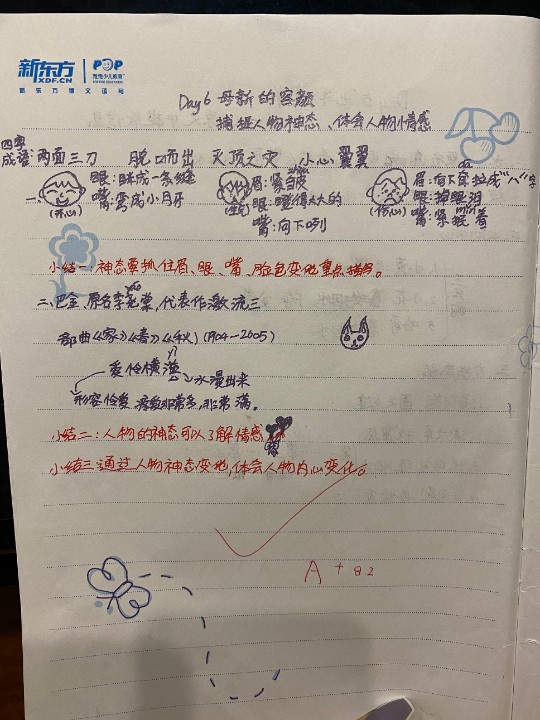 新东方 POP
XDF.CN 泡泡少儿教育
新东方博文速记
Day 6 母新的容颜
捕捉人物神态、体会人物情感
四字
成语:两面三刀 脱口而出 灭顶之灾 小心翼翼
一、(开心) 眼:眯成一条缝 嘴:弯成小月牙
(生气) 眉:紧皱 眼:瞪得大大的 嘴:向下咧
(伤心) 眉:向下宜拉成"八"字 眼:掉眼泪 嘴:紧抿着 min
小结一:神态要抓住眉、眼、嘴、脸色变化重点描写。
二、巴金,原名李尧棠,代表作激流三 yáo
部曲《家》《春》《秋》(1904-2005)
爱怜横溢 yì→水漫出来
形容怜爱、疼爱非常多,非常满。
小结二:人物的神态可以了解情感
小结三:通过人物神态变化,体会人物内心变化。
A + 82